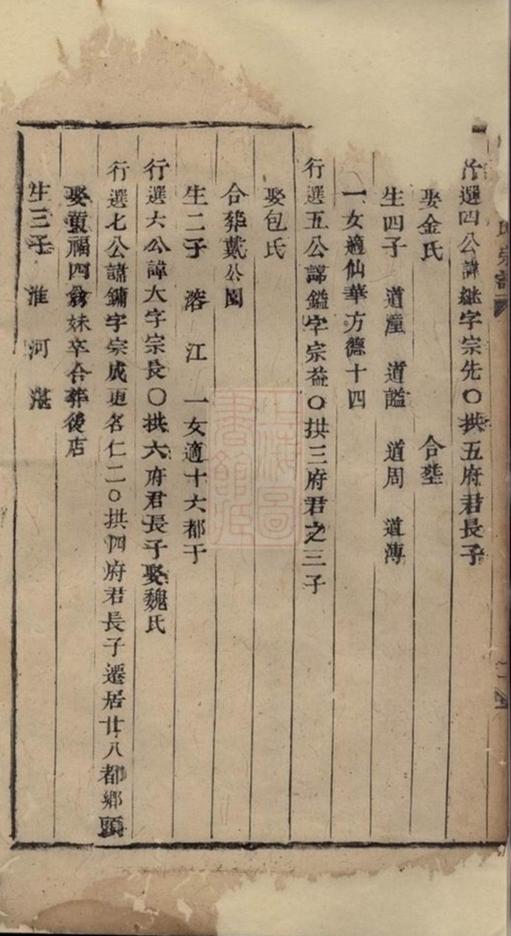 行選四公諱継字宗先〇拱五府君長子
娶金氏 合塟
生四子 道潼 道謐 道周 道溥
一女適仙華方德十四
行選五公諱鎰字宗益〇拱三府君之三子
娶包氏
合葬戴公園
生二子 溶 江 一女適十六都于
行選六公諱大字宗長〇拱六府君長子娶魏氏
行選七公諱鏞字宗成更名仁二〇拱四府君長子遷居廿八都鄉頭
娶黃福四翁妹卒合葬後店
生三子 淮 河 湛
氏宗譜